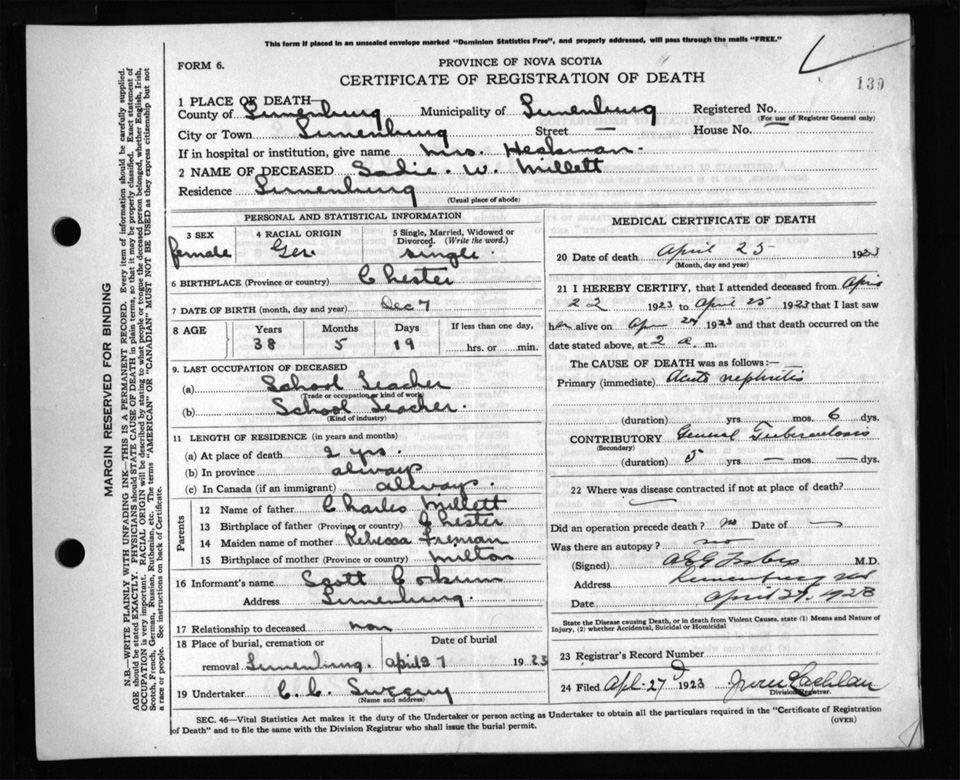 This form if placed in an unsealed envelope marked "Dominion Statistics Free", and properly addressed, will pass through the mails "FREE."
FORM 6.
PROVINCE OF NOVA SCOTIA
CERTIFICATE OF REGISTRATION OF DEATH
139
1 PLACE OF DEATH—
County of Lunenburg Municipality of Lunenburg Registered No.
(For use of Registrar General only)
City or Town Lunenburg Street — House No. —
If in hospital or institution, give name Mrs. Heckman.
2 NAME OF DECEASED Sadie. W. Millett
Residence Lunenburg
(Usual place of abode)
PERSONAL AND STATISTICAL INFORMATION
3 SEX female
4 RACIAL ORIGIN Ger.
5 Single, Married, Widowed or Divorced. (Write the word.) single.
6 BIRTHPLACE (Province or country) Chester
7 DATE OF BIRTH (month, day and year) Dec 7
8 AGE Years Months Days If less than one day,
38 5 19 hrs. or min.
9. LAST OCCUPATION OF DECEASED
(a) School Teacher
(Trade or occupation or kind of work)
(b) School Teacher.
(Kind of industry)
11 LENGTH OF RESIDENCE (in years and months)
(a) At place of death 2 yrs.
(b) In province always
(c) In Canada (if an immigrant) allways.
Parents
12 Name of father Charles Millett
13 Birthplace of father (Province or country) Chester
14 Maiden name of mother Rebecca Freman
15 Birthplace of mother (Province or country) Milton
16 Informant's name Scott Corkum
Address Lunenburg.
17 Relationship to deceased non
18 Place of burial, cremation or removal Lunenburg. Date of burial April 27 1923
19 Undertaker C. C. Sweeny
(Name and address)
MEDICAL CERTIFICATE OF DEATH
20 Date of death April 25 1923
(Month, day and year)
21 I HEREBY CERTIFY, that I attended deceased from April
22 1923 to April 25 1923 that I last saw
her alive on Apr 24 1923 and that death occurred on the
date stated above, at 2 a. m.
The CAUSE OF DEATH was as follows:—
Primary (immediate) Acute nephritis
(duration) yrs mos. 6 dys.
CONTRIBUTORY General Tuberculosis
(Secondary)
(duration) 5 yrs — mos. — dys.
22 Where was disease contracted if not at place of death?
Did an operation precede death? no Date of —
Was there an autopsy? no
(Signed) M.D.
Address Lunenburg NS
Date April 27. 1923
State the Disease causing Death, or in death from Violent Causes, state (1) Means and Nature of Injury, (2) whether Accidental, Suicidal or Homicidal
23 Registrar's Record Number
24 Filed Apl- 27 1923 Lachlan
Division Registrar.
SEC. 46—Vital Statistics Act makes it the duty of the Undertaker or person acting as Undertaker to obtain all the particulars required in the "Certificate of Registration
of Death" and to file the same with the Division Registrar who shall issue the burial permit.
(OVER)
MARGIN RESERVED FOR BINDING
N.B.—WRITE PLAINLY WITH UNFADING INK—THIS IS A PERMANENT RECORD. Every item of information should be carefully supplied.
AGE should be stated EXACTLY. PHYSICIANS should STATE CAUSE OF DEATH in plain terms, so that it may be properly classified. Exact statement of
OCCUPATION is very important. RACIAL ORIGIN will be described by stating to what people or tongue the deceased person belonged, whether English, Irish,
Scotch, French, German, Russian, Ruthenian, etc. The terms "AMERICAN" OR "CANADIAN" MUST NOT BE USED as they express citizenship but not
a race or people. See instructions on back of Certificate.